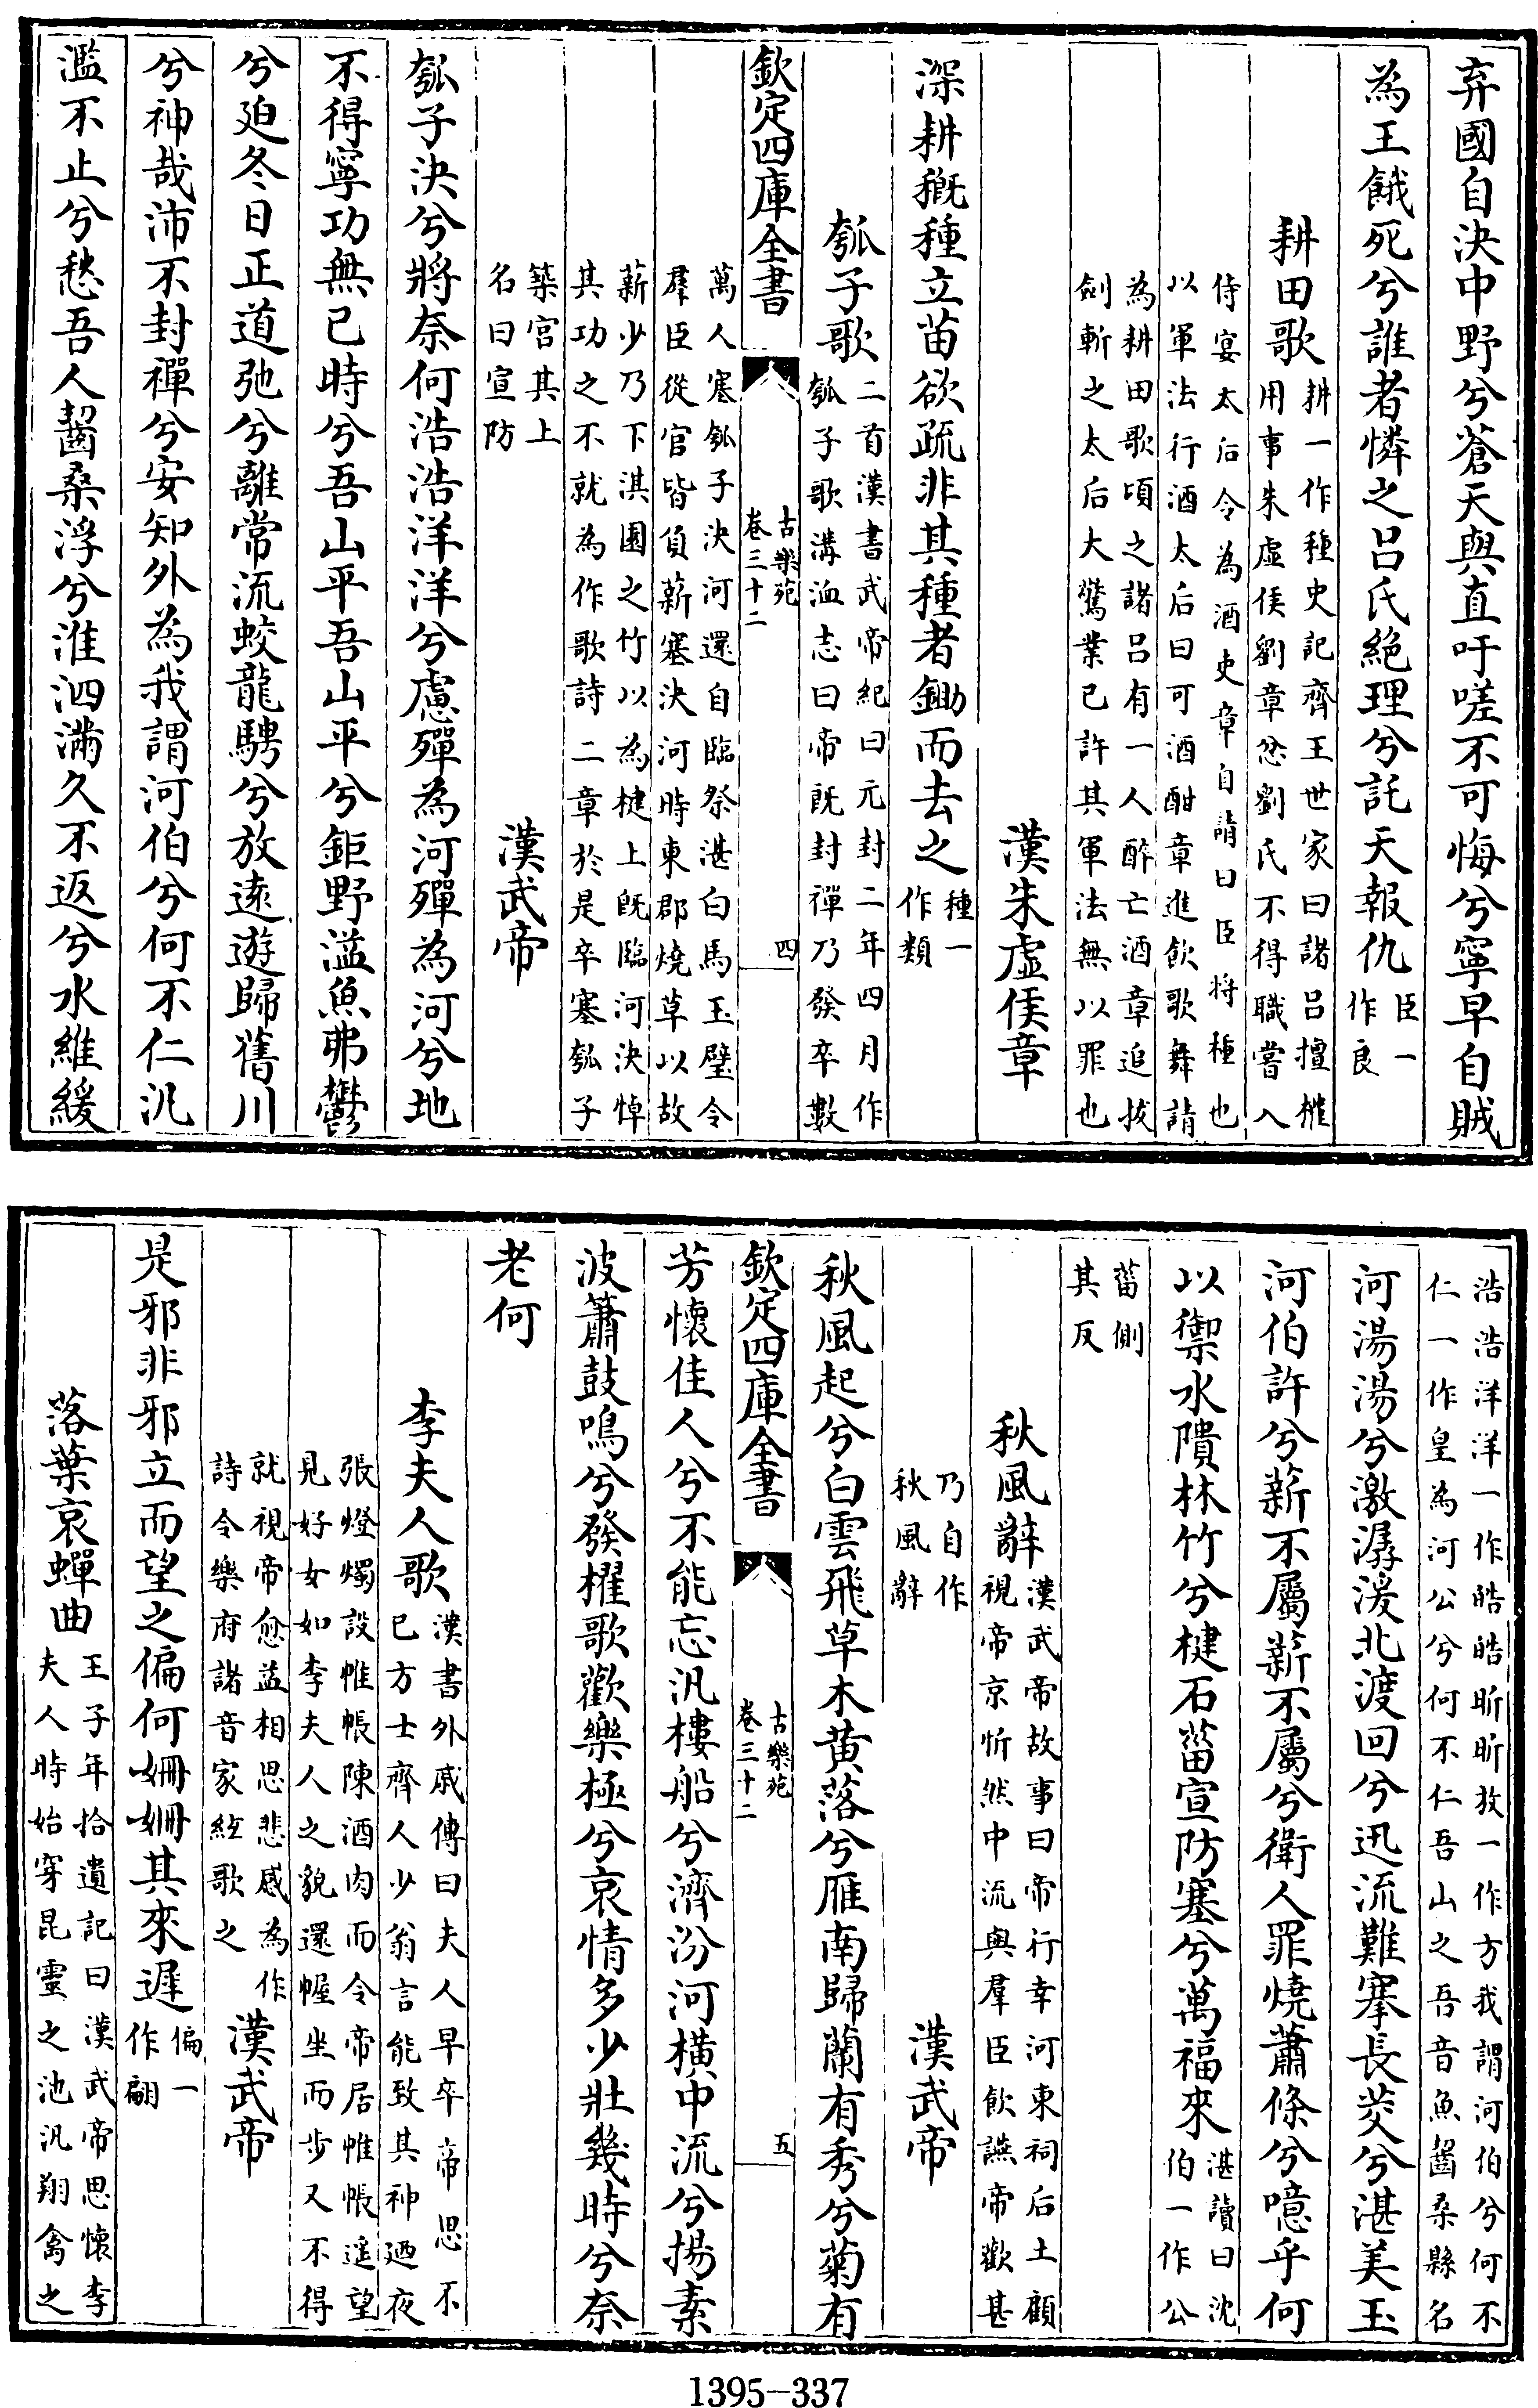 弃國自決中野兮蒼天與直吁嗟不可悔兮寧早自賊
為王餓死兮誰者憐之呂氏絕理兮託天報仇臣一作良
耕田歌耕一作種史記齊王世家曰諸呂擅權用事朱虛侯劉章忿劉氏不得職嘗入
侍宴太后令為酒吏章自請曰臣將種也以軍法行酒太后曰可酒酣章進飲歌舞請
為耕田歌頃之諸呂有一人醉亡酒章追拔劍斬之太后大驚業已許其軍法無以罪也
漢朱虛侯章
深耕穊種立苗欲疏非其種者鋤而去之種一作類
瓠子歌二首漢書武帝紀曰元封二年四月作瓠子歌溝洫志曰帝既封禪乃發卒數
欽定四庫全書
古樂苑
卷三十二
四
萬人塞瓠子決河還自臨祭湛白馬玉璧令羣臣從官皆負薪塞決河時東郡燒草以故
薪少乃下淇園之竹以為楗上既臨河決悼其功之不就為作歌詩二章於是卒塞瓠子
築宮其上名曰宣防
漢武帝
瓠子決兮將奈何浩浩洋洋兮慮殫為河殫為河兮地
不得寧功無已時兮吾山平吾山平兮鉅野溢魚弗鬱
兮迫冬日正道弛兮離常流蛟龍騁兮放遠遊歸舊川
兮神哉沛不封禪兮安知外為我謂河伯兮何不仁汎
濫不止兮愁吾人齧桑浮兮淮泗滿久不返兮水維緩
浩浩洋洋一作皓皓旰旰放一作方我謂河伯兮何不仁一作皇為河公兮何不仁吾山之吾音魚齧桑縣名
河湯湯兮激潺湲北渡回兮迅流難搴長茭兮湛美玉
河伯許兮薪不屬薪不屬兮衛人罪燒蕭條兮噫乎何
以禦水隤林竹兮楗石菑宣防塞兮萬福來湛讀曰沈伯一作公
菑側其反
秋風辭漢武帝故事曰帝行幸河東祠后土顧視帝京忻然中流與羣臣飲讌帝歡甚
乃自作秋風辭
漢武帝
秋風起兮白雲飛草木黃落兮雁南歸蘭有秀兮菊有
欽定四庫全書
古樂苑
卷三十二
五
芳懷佳人兮不能忘汎樓船兮濟汾河橫中流兮揚素
波簫鼓鳴兮發櫂歌歡樂極兮哀情多少壯幾時兮奈
老何
李夫人歌漢書外戚傳曰夫人早卒帝思不已方士齊人少翁言能致其神廼夜
張燈燭設帷帳陳酒肉而令帝居帷帳遥望見好女如李夫人之貌還幄坐而步又不得
就視帝愈益相思悲感為作詩令樂府諸音家絃歌之
漢武帝
是邪非邪立而望之偏何姍姍其來遲偏一作翩
落葉哀蟬曲王子年拾遺記曰漢武帝思懷李夫人時始穿昆靈之池汎翔禽之
1395-337